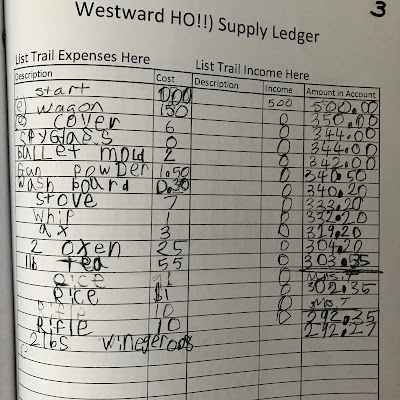 3
Westward HO!!) Supply Ledger
List Trail Expenses Here List Trail Income Here
Description Cost Description Income Amount in Account
start 000 500 500.00
wagon 150 0 350.00
cover 6 0 344.00
spyglaes 0 0 344.00
bullet mold 2 0 342.00
Gun powder 1.50 0 340.50
wash board 0.30 0 340.20
stove 7 0 333.20
whip 1 0 332.20
ax 3 0 329.20
2 oxen 25 0 304.20
1lb tea 55 0 303.35
rice $1 0 Mrs.T
Rice $1 0 302.35
10 0 Mrs.T
Rifle 10 0 292.35
2 lbs wineger 0.08 292.27